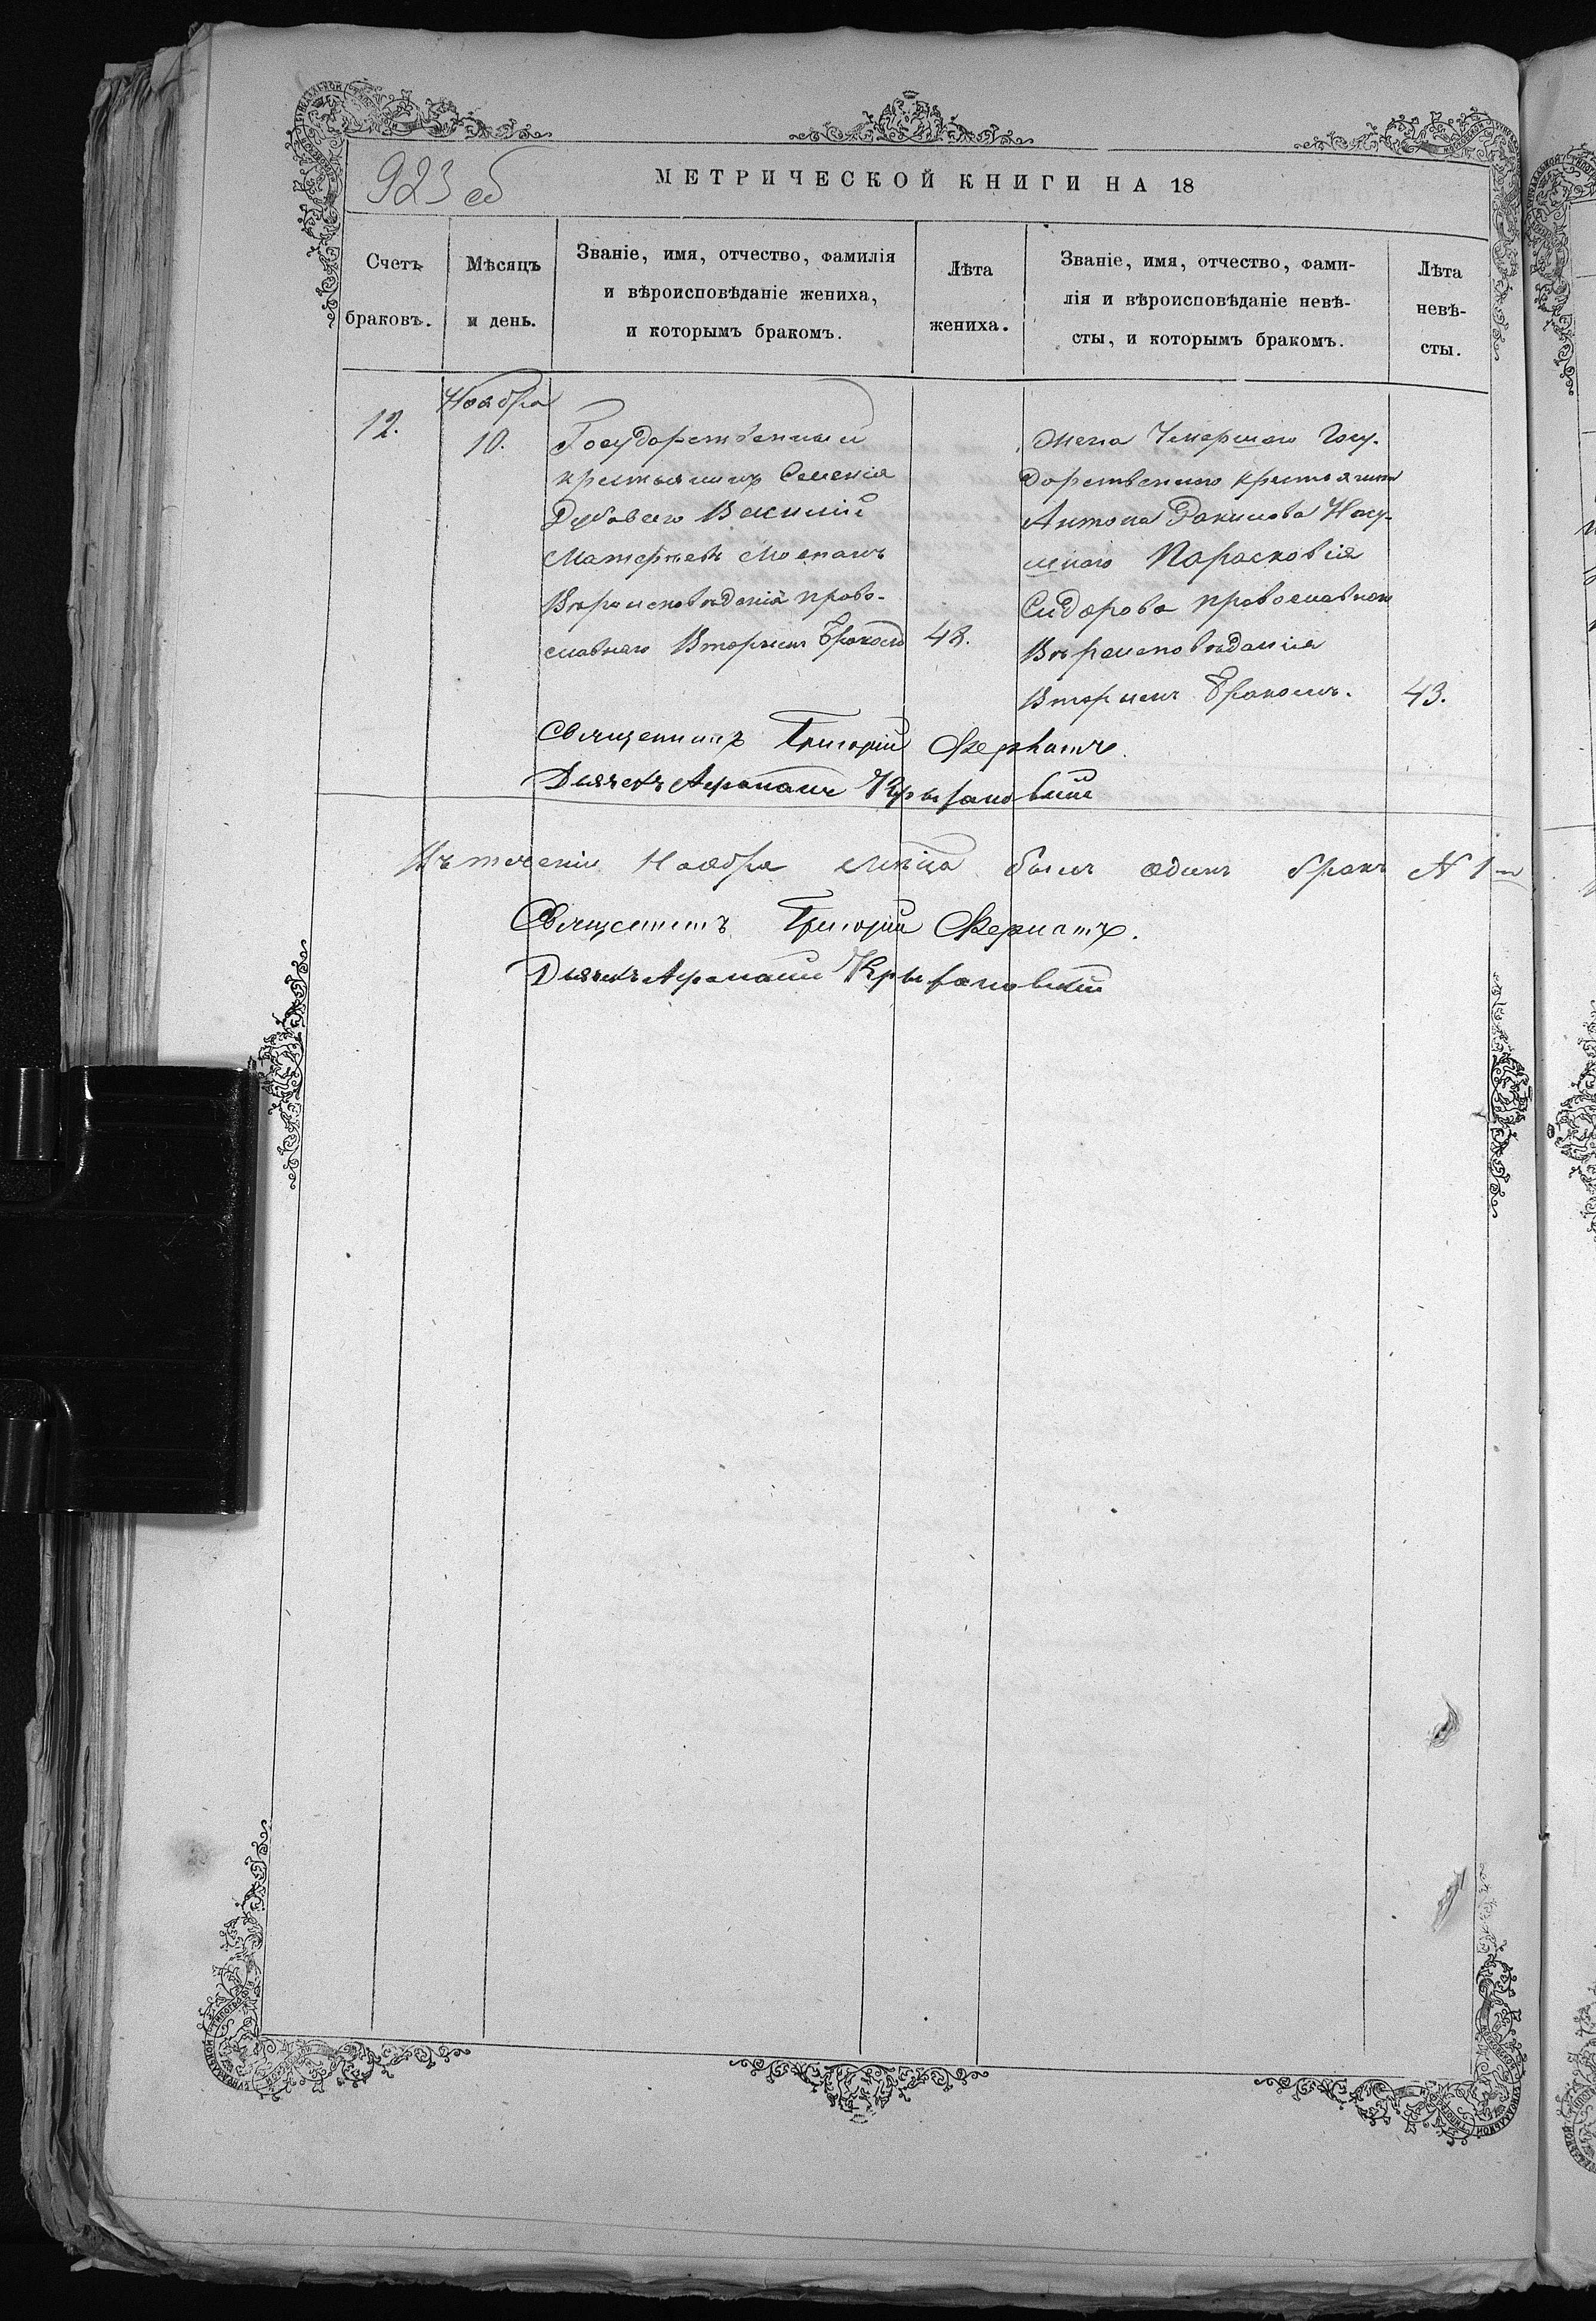 923 об
МЕТРИЧЕСКОЙ КНИГИ НА 18
Счетъ браковъ.
Мѣсяцъ и день.
Званіе, имя, отчество, фамилія
и вѣроисповѣданіе жениха,
и которымъ бракомъ.
Лѣта жениха.
Званіе, имя, отчество, фами-
лія и вѣроисповѣданіе невѣ-
сты, и которымъ бракомъ.
Лѣта невѣ-
сты.
Ноября
12.
10.
Государственный
крестьянинъ Селенія
Дубоваго Василий
Матфѣевъ
Вѣроисповѣданія право-
славнаго Вторымъ бракомъ
48.
Жена Умершаго Госу-
дарственнаго крестьянина
Антона Данилова
Парасковія
Сидорова православнаго
Вѣроисповѣданія
Вторымъ бракомъ.
43.
Священникъ Григорій
Дьячекъ Афанасій Крыжановскій
Въ теченіи Ноября мѣсяца былъ одинъ бракъ № 1-й
Священникъ Григорій
Дьячекъ Афанасій Крыжановскій